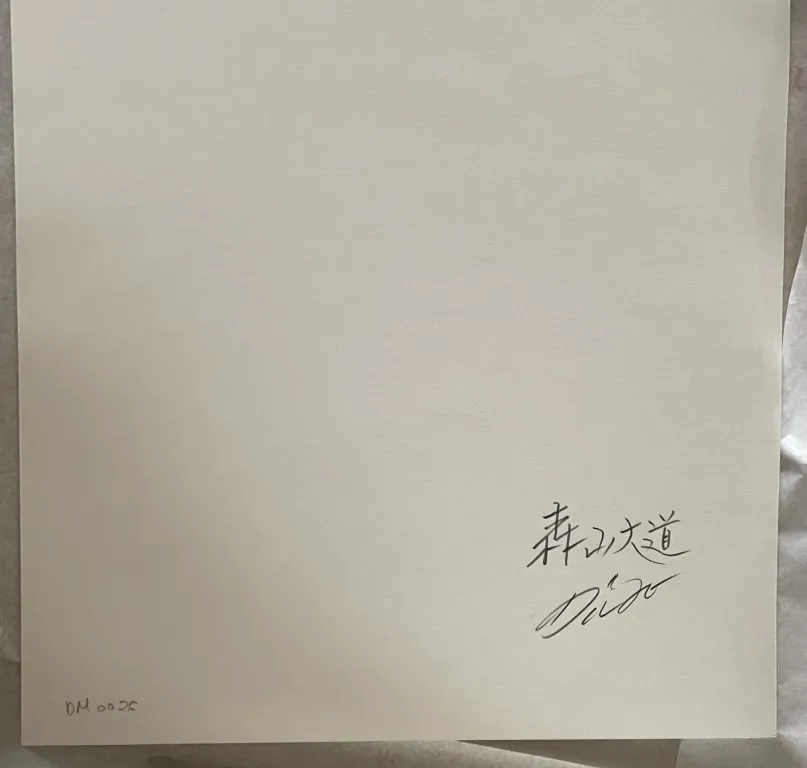 森山大道
Daido
DM 0025